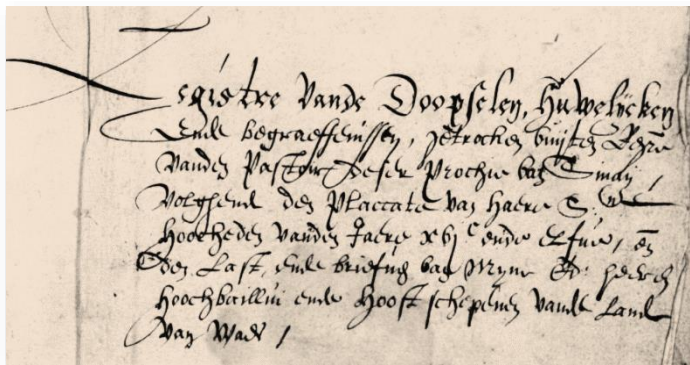 Registre vande Doopselen, Huwelycken
Ende begraeffenissen, getrocken buyten
Vanden Pastoor deser Prochie van Sinay,
Volghende den Placcate van Haere S.
Hoocheden vanden Jaere xvj c ende Elfve, en
Den Last, ende briefvi͠g van Myne Ed: heeren
Hoochbailliu ende Hooftschepenen vande Lande
Van Waes,